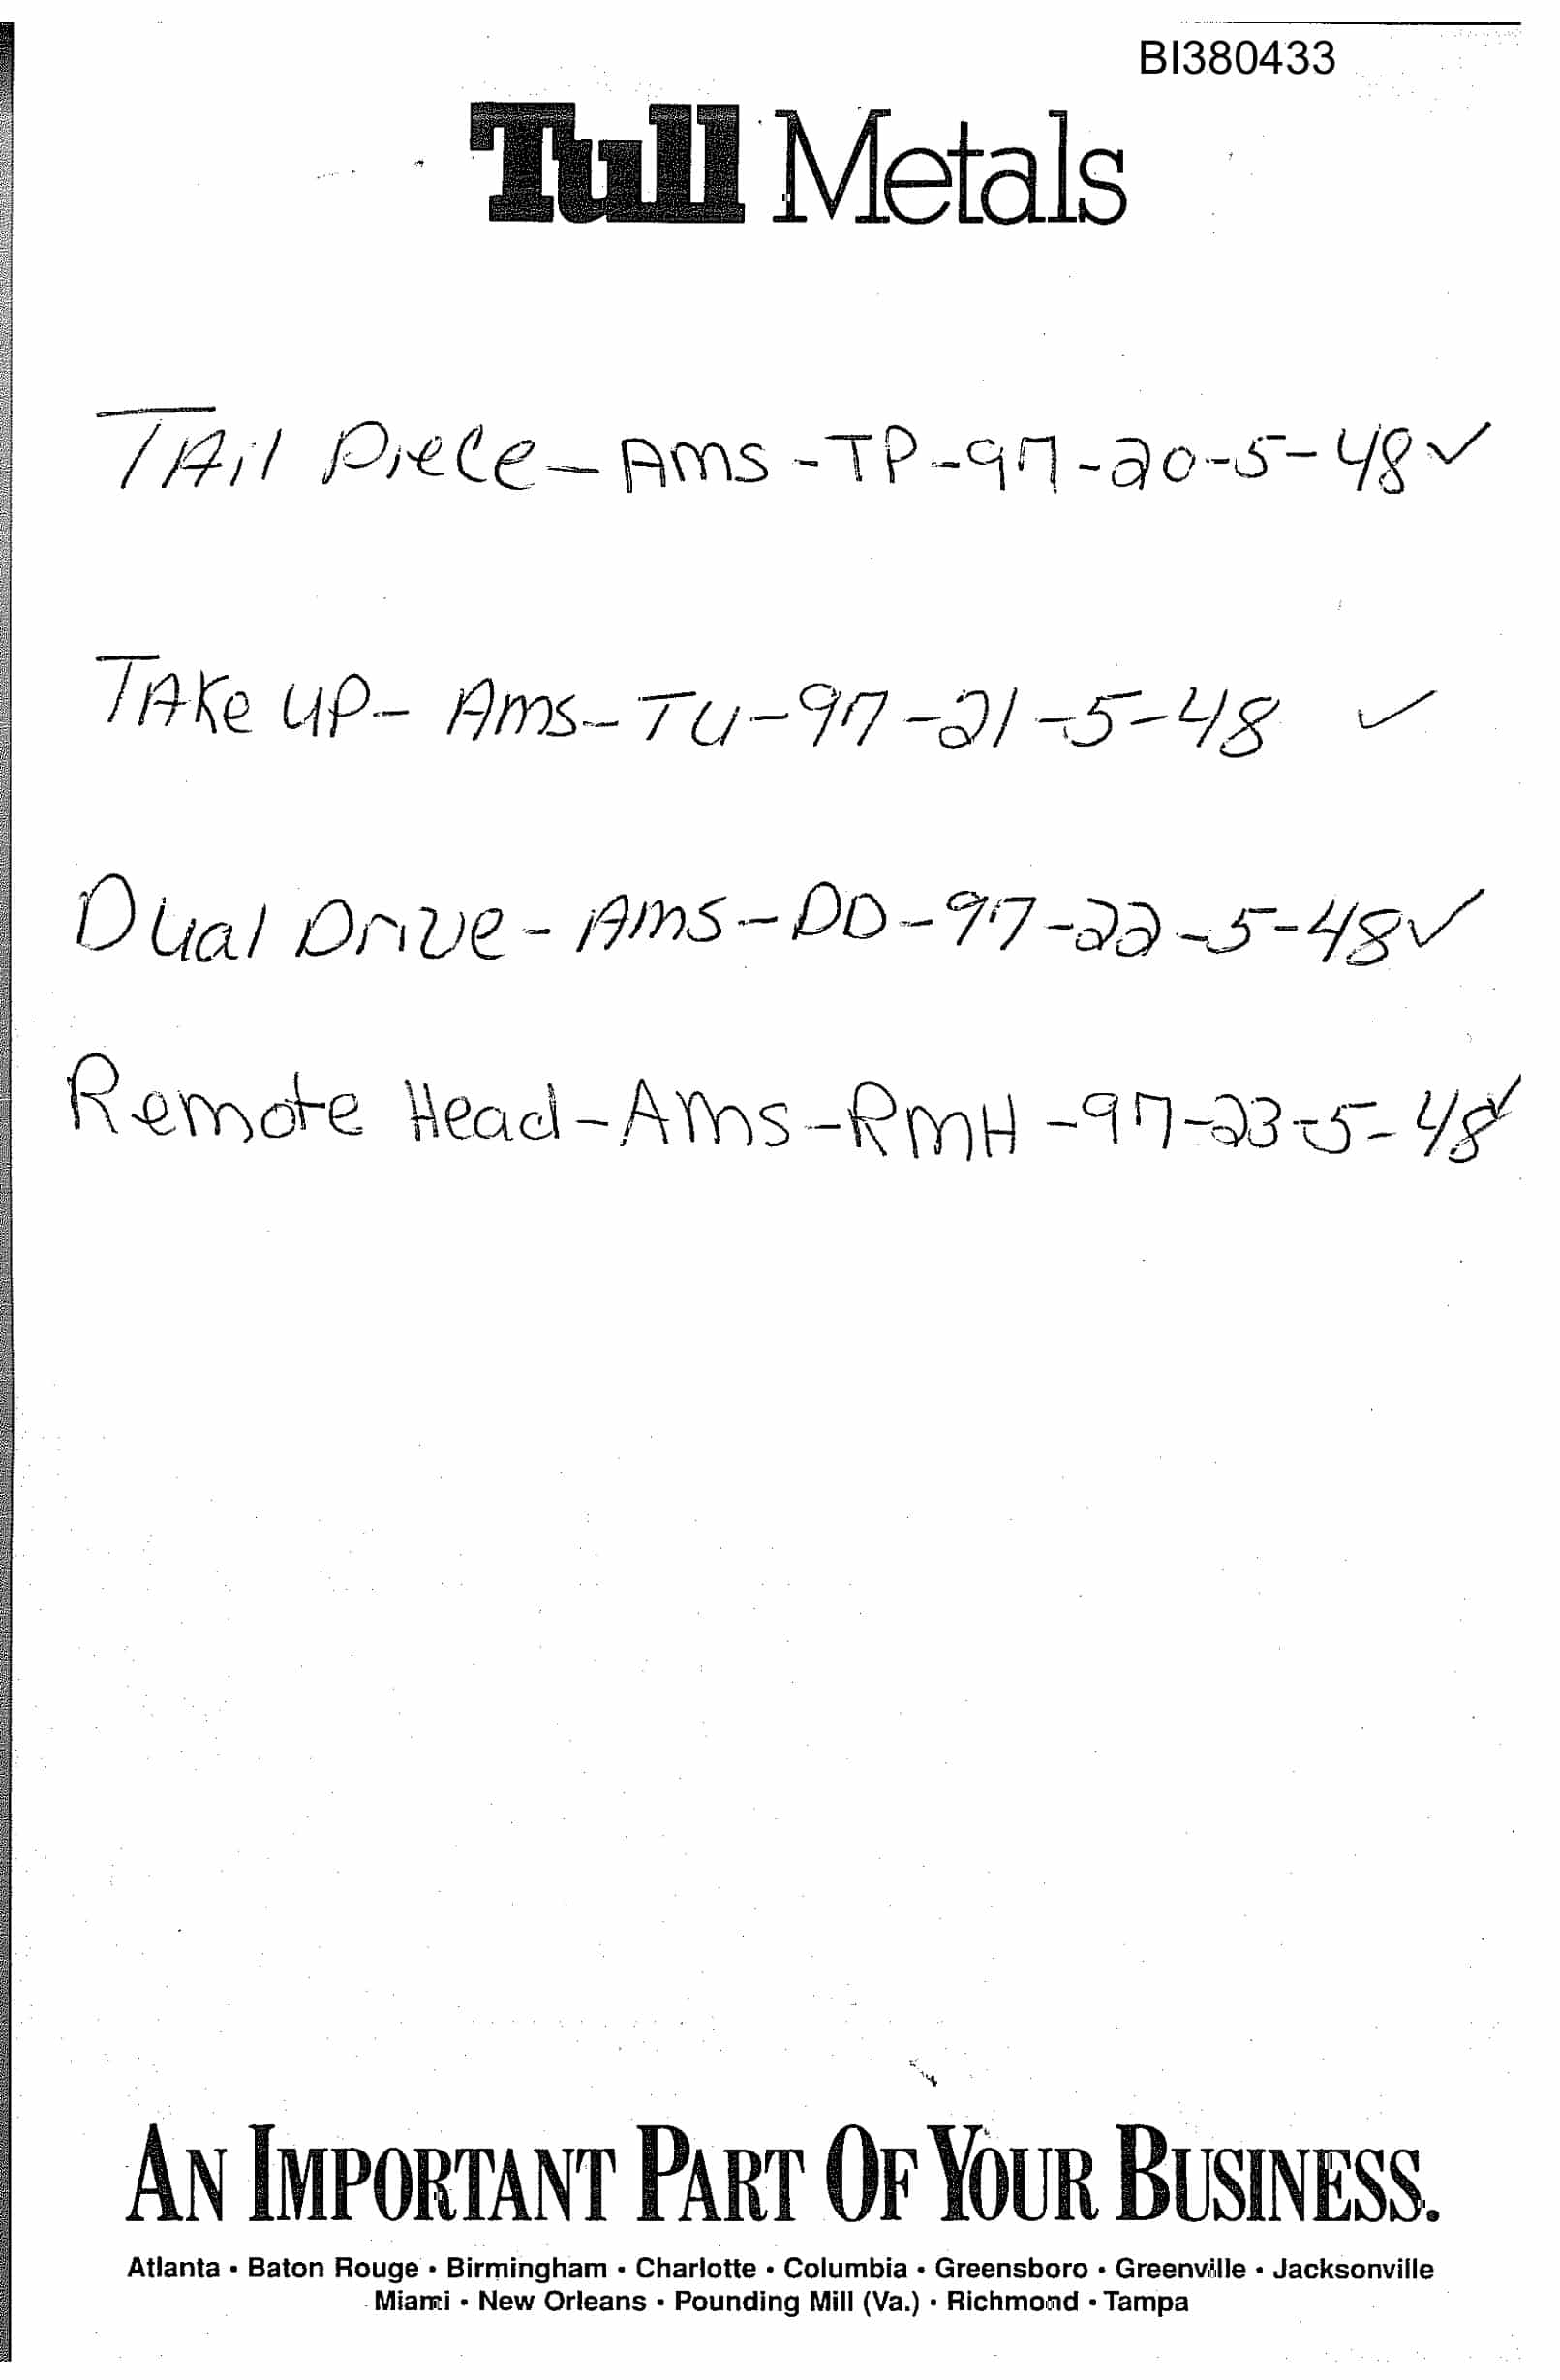 BI380433
Tull Metals
TAil Piece - Ams - TP - 97 - 20 - 5 - 48 ✓
TAKe UP - Ams - TU - 97 - 21 - 5 - 48 ✓
Dual Drive - Ams - DD - 97 - 22 - 5 - 48 ✓
Remote Head - Ams - RMH - 97 - 23 - 5 - 48 ✓
AN IMPORTANT PART OF YOUR BUSINESS.
Atlanta • Baton Rouge • Birmingham • Charlotte • Columbia • Greensboro • Greenville • Jacksonville
Miami • New Orleans • Pounding Mill (Va.) • Richmond • Tampa